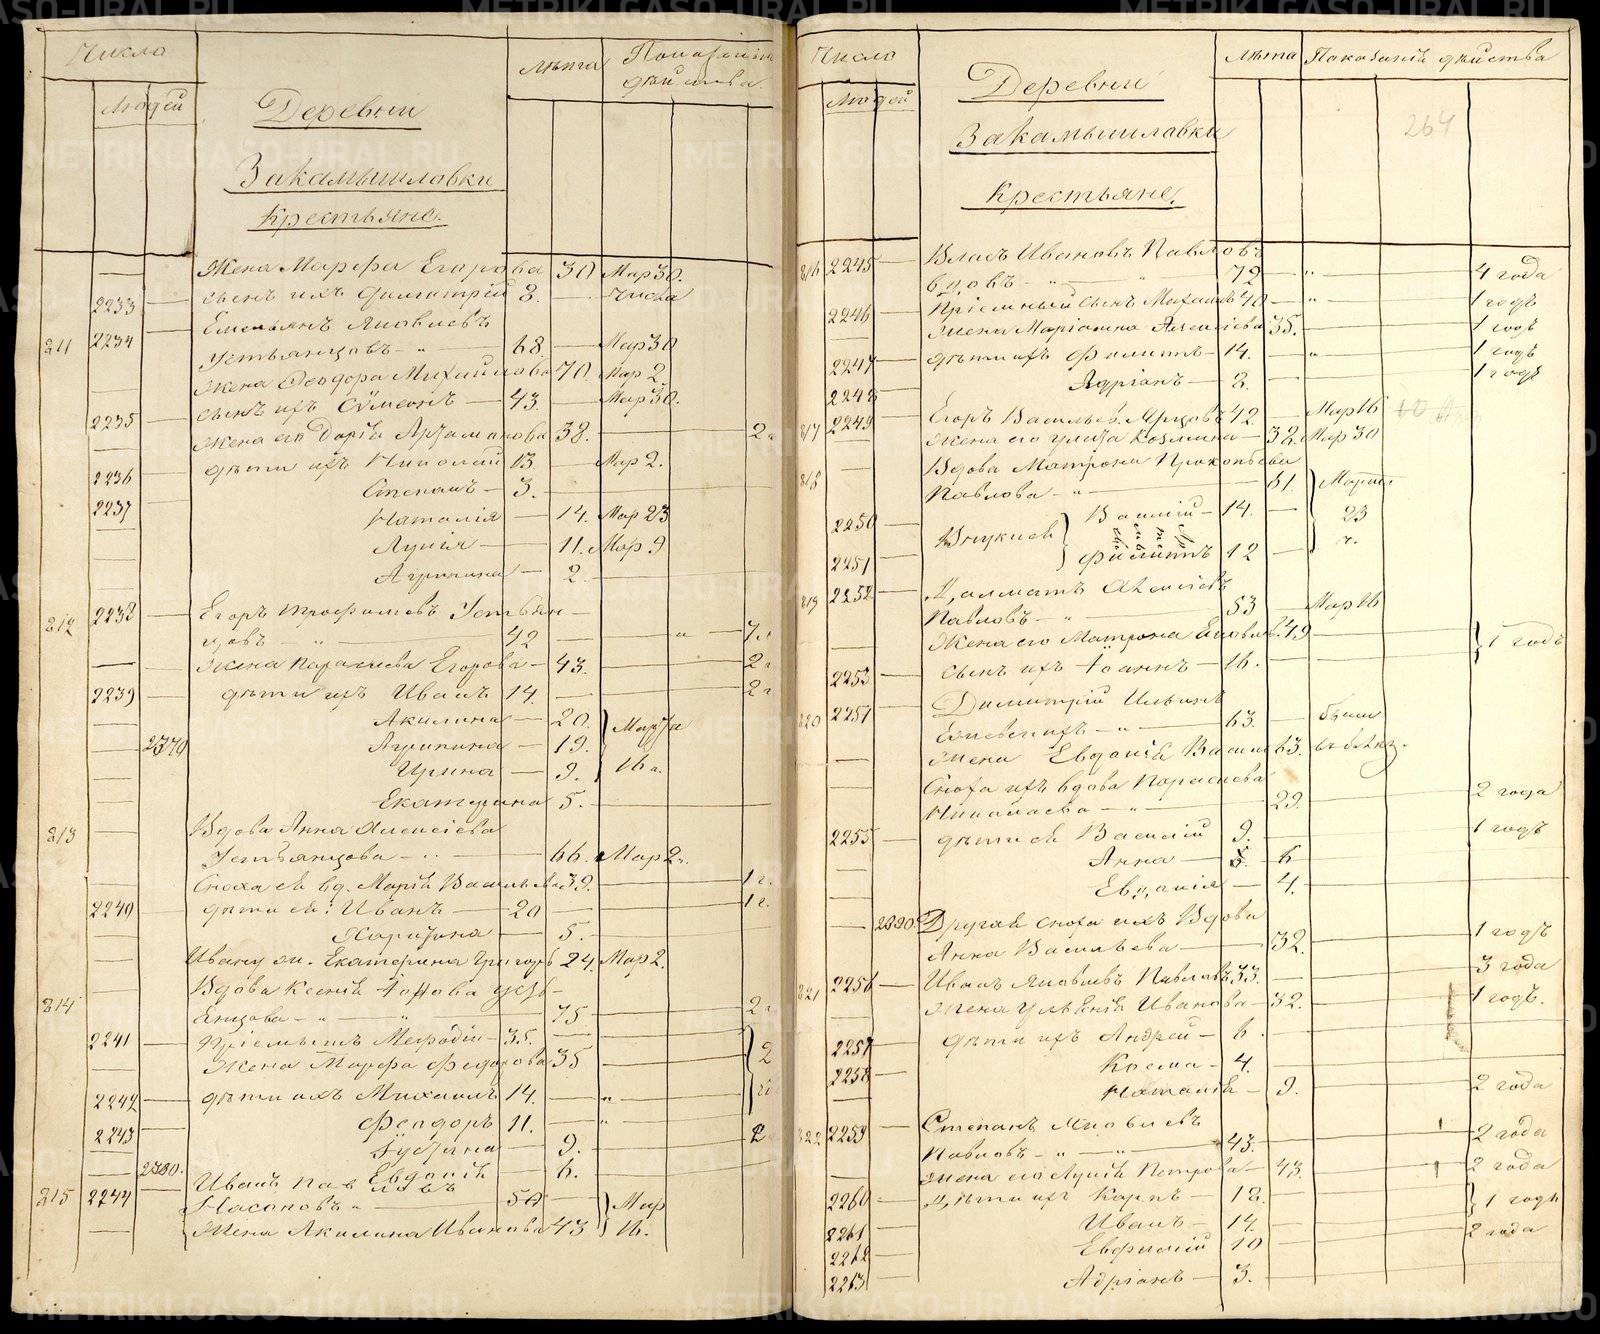 Число
Людей
Деревни
Закамышлавки
Крестьяне.
Лѣта
Показаніе
дѣйства
Жена Марѳа Егорова 30 Мар 30.
2233 — сынъ ихъ Димитрій 8. — числа
211 2234 Емельянъ Яковлевъ
Устьянцовъ — 68. — Мар 30
Жена Ѳеодора Михайлова 70. Мар 2.
2235 — сынъ ихъ Сѵмеонъ — 43. — Мар 30.
Жена его Дарія Артамонова 38. — 2
2236 — дѣти ихъ Николай 13. — Мар 2.
2237 Степанъ — 3.
Наталія — 14. Мар 23
Лукія — 11. Мар 9
Агрипина — 2.
212 2238 — Егоръ Трофимовъ Устьян-
цовъ " — 42 — " — 7
Жена Парасиева Егорова — 43. — 2
2239 — дѣти ихъ Иванъ 14. — 2
Акилина — 20. Марта
2370 Агрипина — 19.
Ирина — 9. 16
Екатерина 5.
213 Вдова Анна Алексіева
Устьянцова — 66. Мар 2.
Сноха ея вд. Марія Васильева 39. — 1 г.
2240 — дѣти ея: Иванъ — 20 — 1 г.
Харитина — 5.
Ивану ж. Екатерина Григорь 24. Мар 2.
214 Вдова Ксенія
янцова — " — 75 — 2
2241 — Пріемышъ Меѳодій — 35. —
Жена Марѳа Ѳедорова 35 — 2
2242 — дѣти ихъ Михаилъ 14. — "
2243 Ѳеодоръ 11. — " — 2
Іустина — 9.
2380. Евдокія — 6.
215 2244 Иванъ Павловъ
Насоновъ " — 50 Мар
Жена Акилина Иванова 43 16.
Число
Людей
Деревни
Закамышлавки
Крестьяне.
Лѣта
Показаніе дѣйства
264
816 2245 — Власъ Ивановъ Павловъ
вдовъ — " 72 — " — 4 года
2246 — Пріемный сынъ Михаилъ 40 — " — 1 годъ
Жена Маріамна Алексіева 35. — 1 годъ
2247 — дѣти ихъ Филиппъ — 14. — " — 1 годъ
2248 Адріанъ — 8. — 1 годъ
817 2249 Егоръ Васильев. 42. — Мар 16
Жена его Улита Козмина — 38. Мар 30
818 Вдова Матрона Прокопьева
Павлова — " — 61. Марта
2250 — Внуки ея Василій — 14. — 23
2251 — Филиппъ 12 — ч.
819 2252 — Далматъ Алексіевъ
Павловъ — " — 53 — Мар 16
Жена его Матрона Яковлев. 49 — 1 годъ
2253 — сынъ ихъ Іоаннъ — 16. —
820 2254 Димитрій Ильинъ
— " — 63. — были
жена Евдокія Васил 63. въ бѣгу.
Сноха ихъ вдова Парасиева
Николаева — " — 29. — 2 года
2255 — дѣти ея Василій 9. — 1 годъ
Анна — 6
Евдокія — 4.
2390 Другая сноха ихъ Вдова
Анна Васильева — 32. — 1 годъ
821 2256 — Иванъ Яковлевъ Павловъ 33. — 3 года
Жена Ульянія Иванова — 32. — 1 годъ.
2257 дѣти ихъ Андрей — 6.
2258 Косма — 4.
Наталія — 9. — 2 года
822 2259 — Степанъ Яковлевъ
Павловъ — " — 43. — 2 года
жена его Лукія Петрова — 43. — 2 года
2260 — Дѣти ихъ Карпъ — 18. — 1 годъ
2261 Иванъ — 14. — 2 года
2262 — Евфимій 10
2263 — Адріанъ — 3.
METRIKI.GASO-URAL.RU